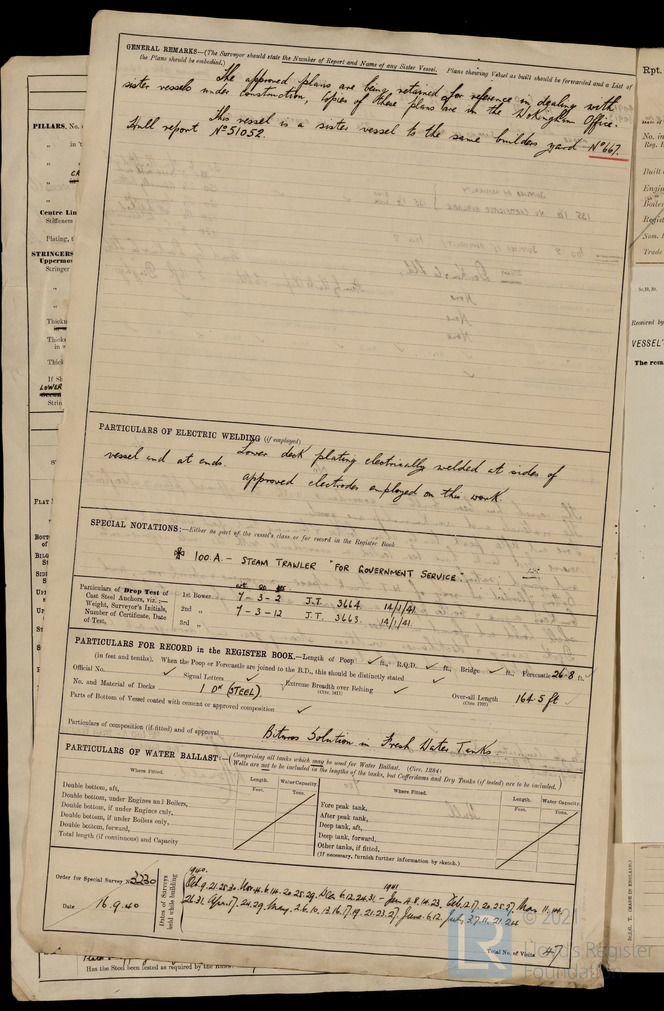 GENERAL REMARKS—(The Surveyor should state the Number of Report and Name of any Sister Vessel. Plans showing Vessel as built should be forwarded and a List of
the Plans should be embodied.)
The approved plans are being retained for reference in dealing with
sister vessels under construction, Copies of these plans are in the Wokingham Office.
This vessel is a sister vessel to the same builders yard No 667.
Hull report No 51052.
PARTICULARS OF ELECTRIC WELDING (if employed)
Lower deck plating electrically welded at sides of
vessel and at ends.
approved electrodes employed on this work.
SPECIAL NOTATIONS:—Either as part of the vessel's class or for record in the Register Book
✠ 100.A.— STEAM TRAWLER "FOR GOVERNMENT SERVICE."
Particulars of Drop Test of
Cast Steel Anchors, viz.:—
Weight, Surveyor's Initials,
Number of Certificate, Date
of Test.
cwt qrs lbs
1st Bower 7-3-2 J.T. 3664 14/1/41
2nd „ 7-3-12 J.T. 3663 14/1/41
3rd „
PARTICULARS FOR RECORD in the REGISTER BOOK.—Length of Poop ✓ ft., R.Q.D. ✓ ft., Bridge ✓ ft., Forecastle 26-8 ft.
(in feet and tenths). When the Poop or Forecastle are joined to the B.D., this should be distinctly stated ✓
Official No. ✓ Signal Letters ✓ Extreme Breadth over Belting ✓ Over-all Length 164.5 ft ✓
(Circ. 1611) (Circ. 1703)
No. and Material of Decks 1 DK (STEEL)
Parts of Bottom of Vessel coated with cement or approved composition ✓
Particulars of composition (if fitted) and of approval Bitumos Solution in Fresh Water Tanks
PARTICULARS OF WATER BALLAST:—(Comprising all tanks which may be used for Water Ballast. (Circ. 1284)
Wells are not to be included in the lengths of the tanks, but Cofferdams and Dry Tanks (if tested) are to be included.)
Where Fitted. Length. Water Capacity. Where Fitted. Length. Water Capacity.
Feet. Tons. Feet. Tons.
Double bottom, aft, Fore peak tank,
Double bottom, under Engines and Boilers, After peak tank,
Double bottom, if under Engines only, Deep tank, aft,
Double bottom, if under Boilers only, Deep tank, forward,
Double bottom, forward, Other tanks, if fitted,
Total length (if continuous) and Capacity (If necessary, furnish further information by sketch.)
Order for Special Survey No. 3330
Date 16.9.40
Dates of Surveys
held while building
1940. 1941
Oct. 9. 21. 25. 30. Nov. 4. 6. 14. 20. 25. 29. Dec. 6. 12. 24. 31.— Jan. 4. 8. 14. 23. Feb. 12. 17. 20. 25. 27. Mar. 11. 14.
26. 31. Apr. 17. 24. 29. May. 2. 6. 10. 13. 16. 17. 19. 21. 23. 27. June. 6. 12. July. 3. 7. 11. 21. 24
Total No. of Visits 47
© 2021
LR
Lloyd's Register
Foundation
PILLARS, No.
Centre Lin
Stiffeners
Plating, t
STRINGERS
Uppermos
Stringer
Thick
If St
LOWER
Rpt.
No. in
Reg. B
Built
Received by
VESSEL'
The rem
Has the Steel been tested as required by the Rules